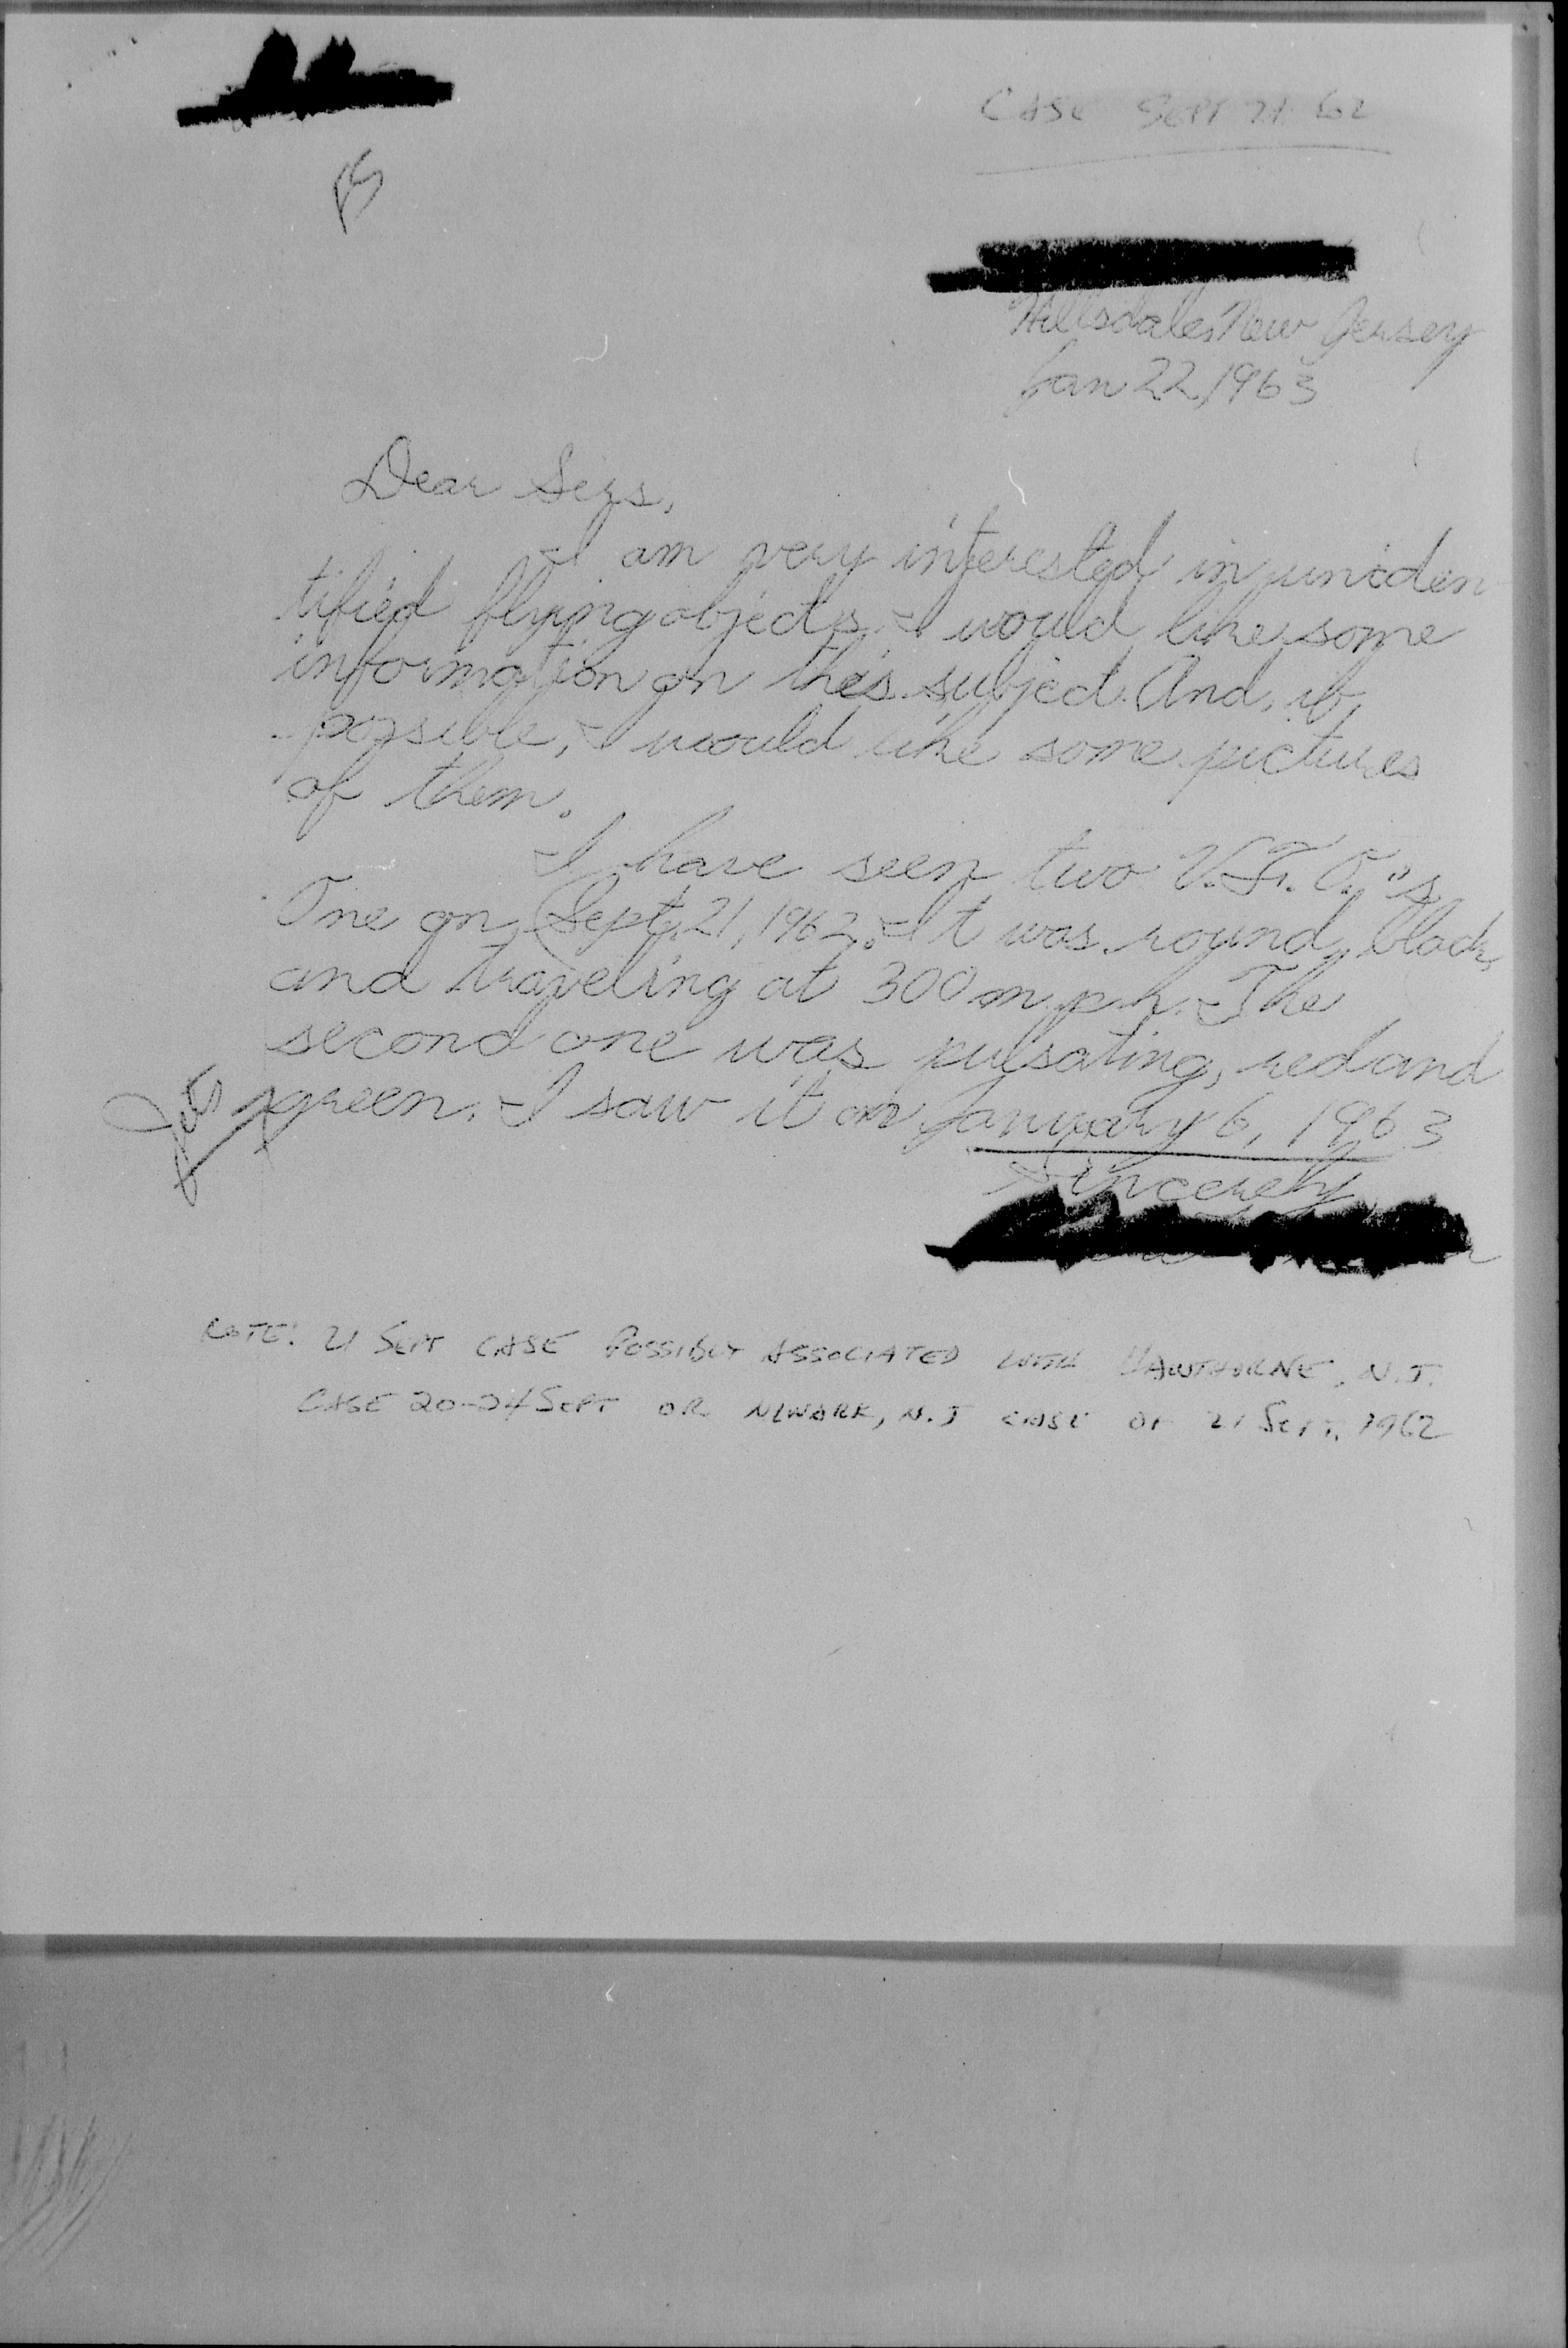 CASE SEPT 21 62
Hillsdale, New Jersey
Jan 22, 1963
Dear Sirs,
I am very interested in uniden
tified flying objects. I would like some
information on this subject. And, if,
possible, I would like some pictures
of them.
I have seen two U.F.O."s,
One on Sept. 21, 1962. It was round, black,
and traveling at 300 m.p.h. The
second one was pulsating, red and
green. I saw it on January 6, 1963
Sincerely,
NOTE: 21 SEPT CASE POSSIBLY ASSOCIATED WITH HAWTHORNE, N.J.
CASE 20-24 SEPT OR NEWARK, N.J CASE OF 21 SEPT, 1962